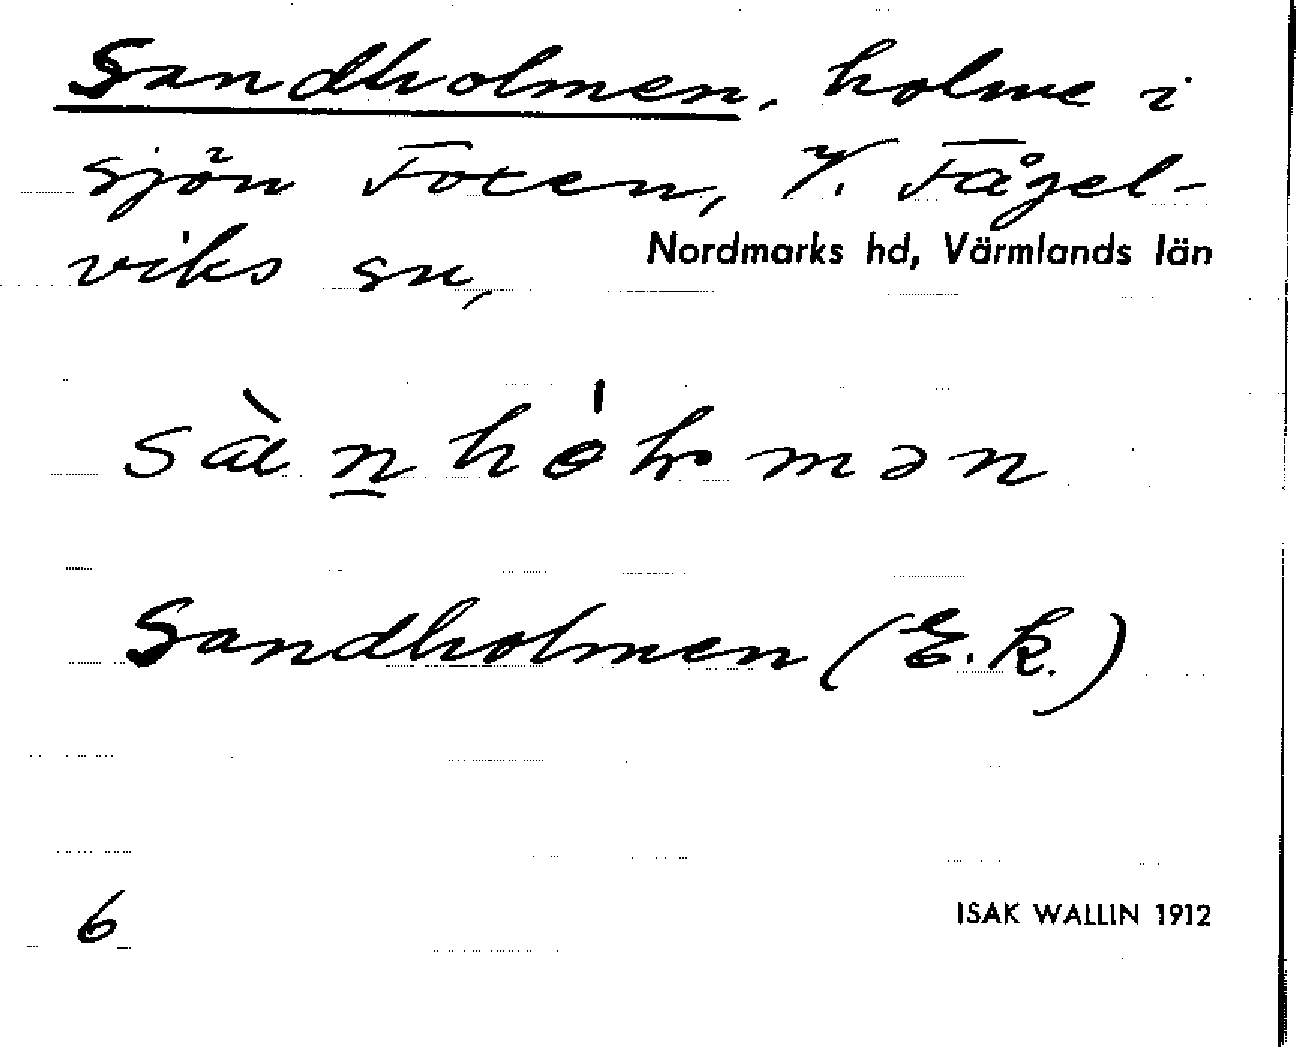 Sandholmen, holme i
sjön Foxen, V. Fågel-
viks sn,
Nordmarks hd, Värmlands län
Sandholmen (E.K.)
6
ISAK WALLIN 1912